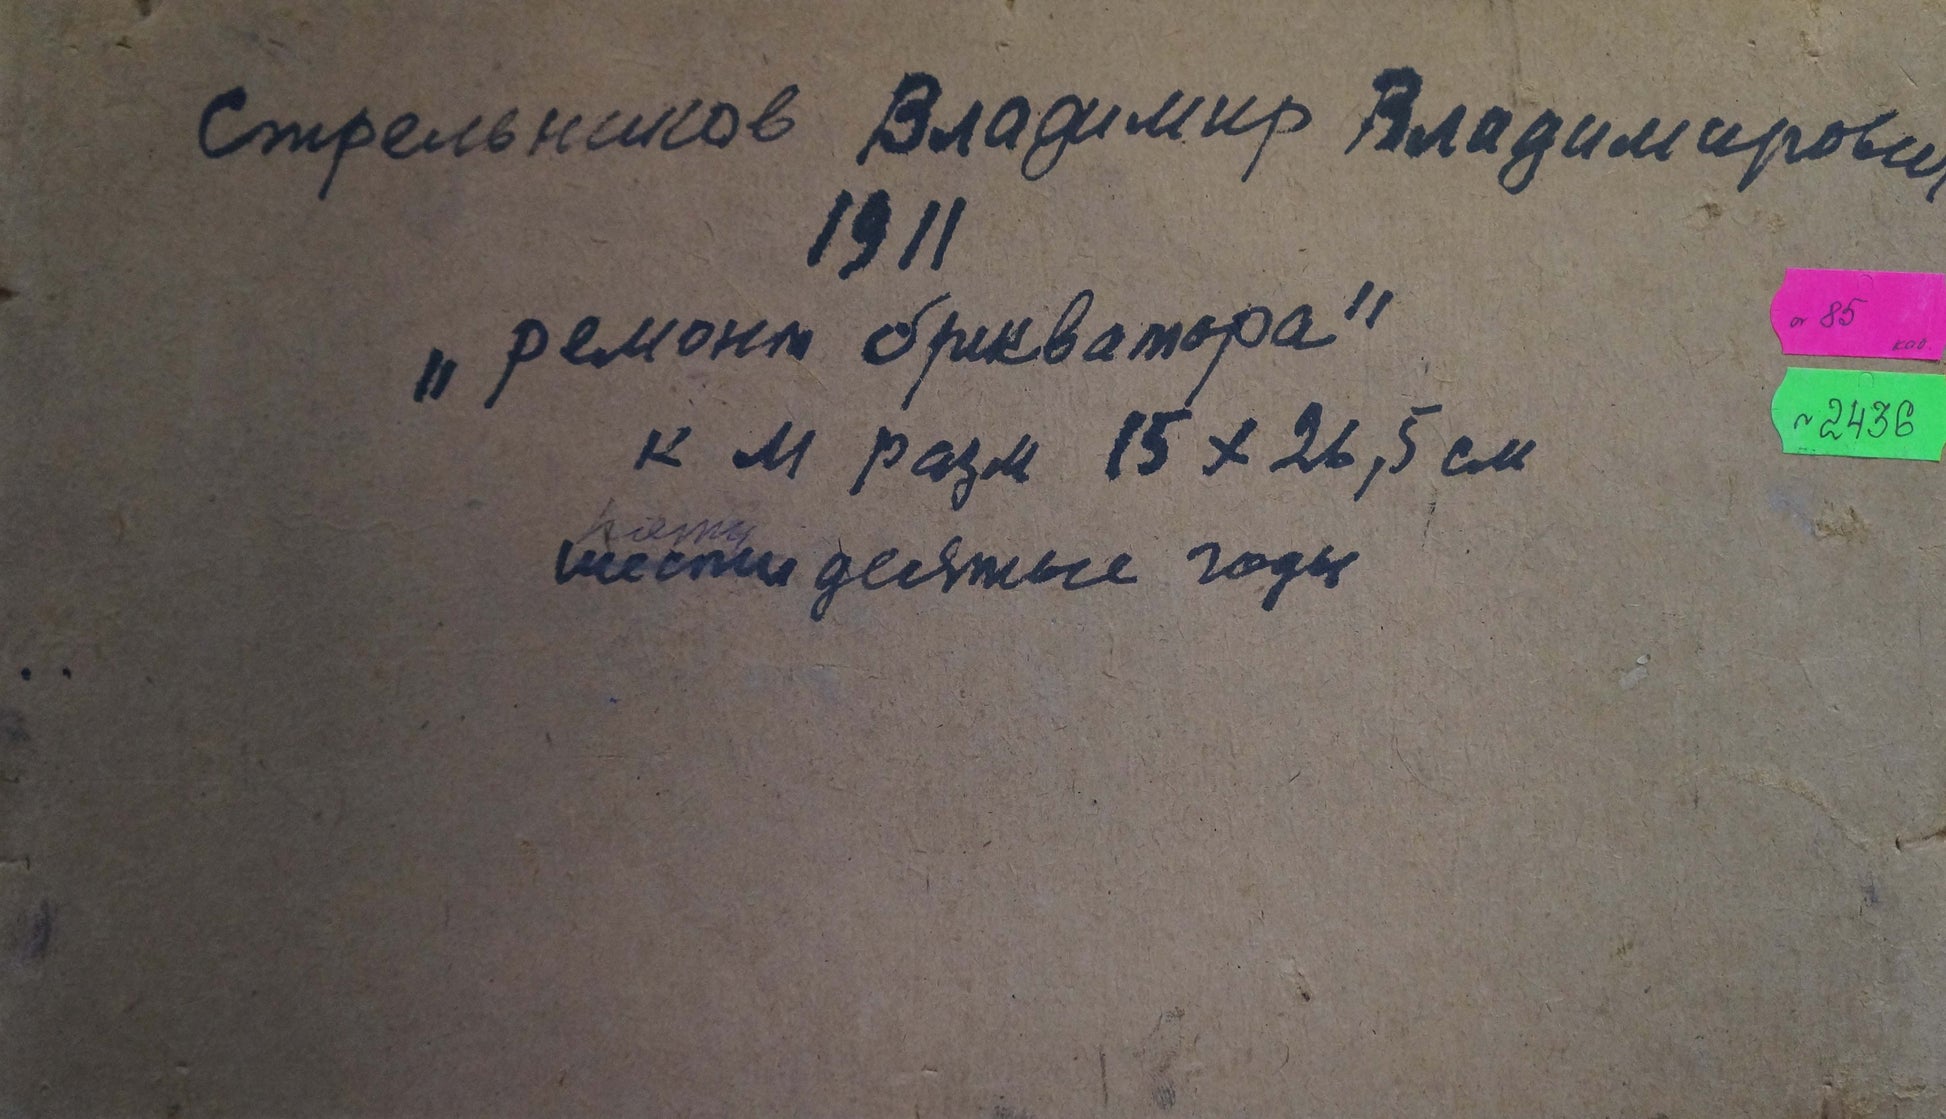 Стрельников Владимир Владимирович
1911
„ремонт брикватора"
к м разм 15 х 26,5 см
пяти
шести десятые годы
~ 85
каб.
~2436